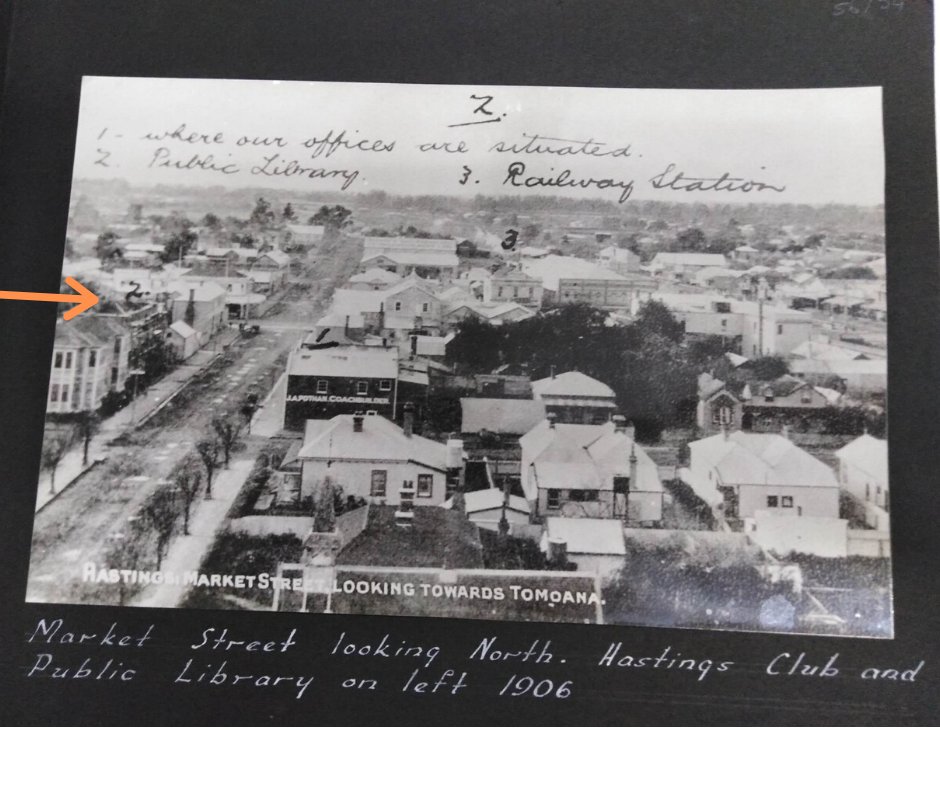 56/94
2.
1 - where our offices are situated.
2. Public Library.
3. Railway Station
3
2.
1
J.A.POTHAN. COACHBUILDER.
HASTINGS: MARKET STREET, LOOKING TOWARDS TOMOANA.
Market Street looking North. Hastings Club and
Public Library on left 1906